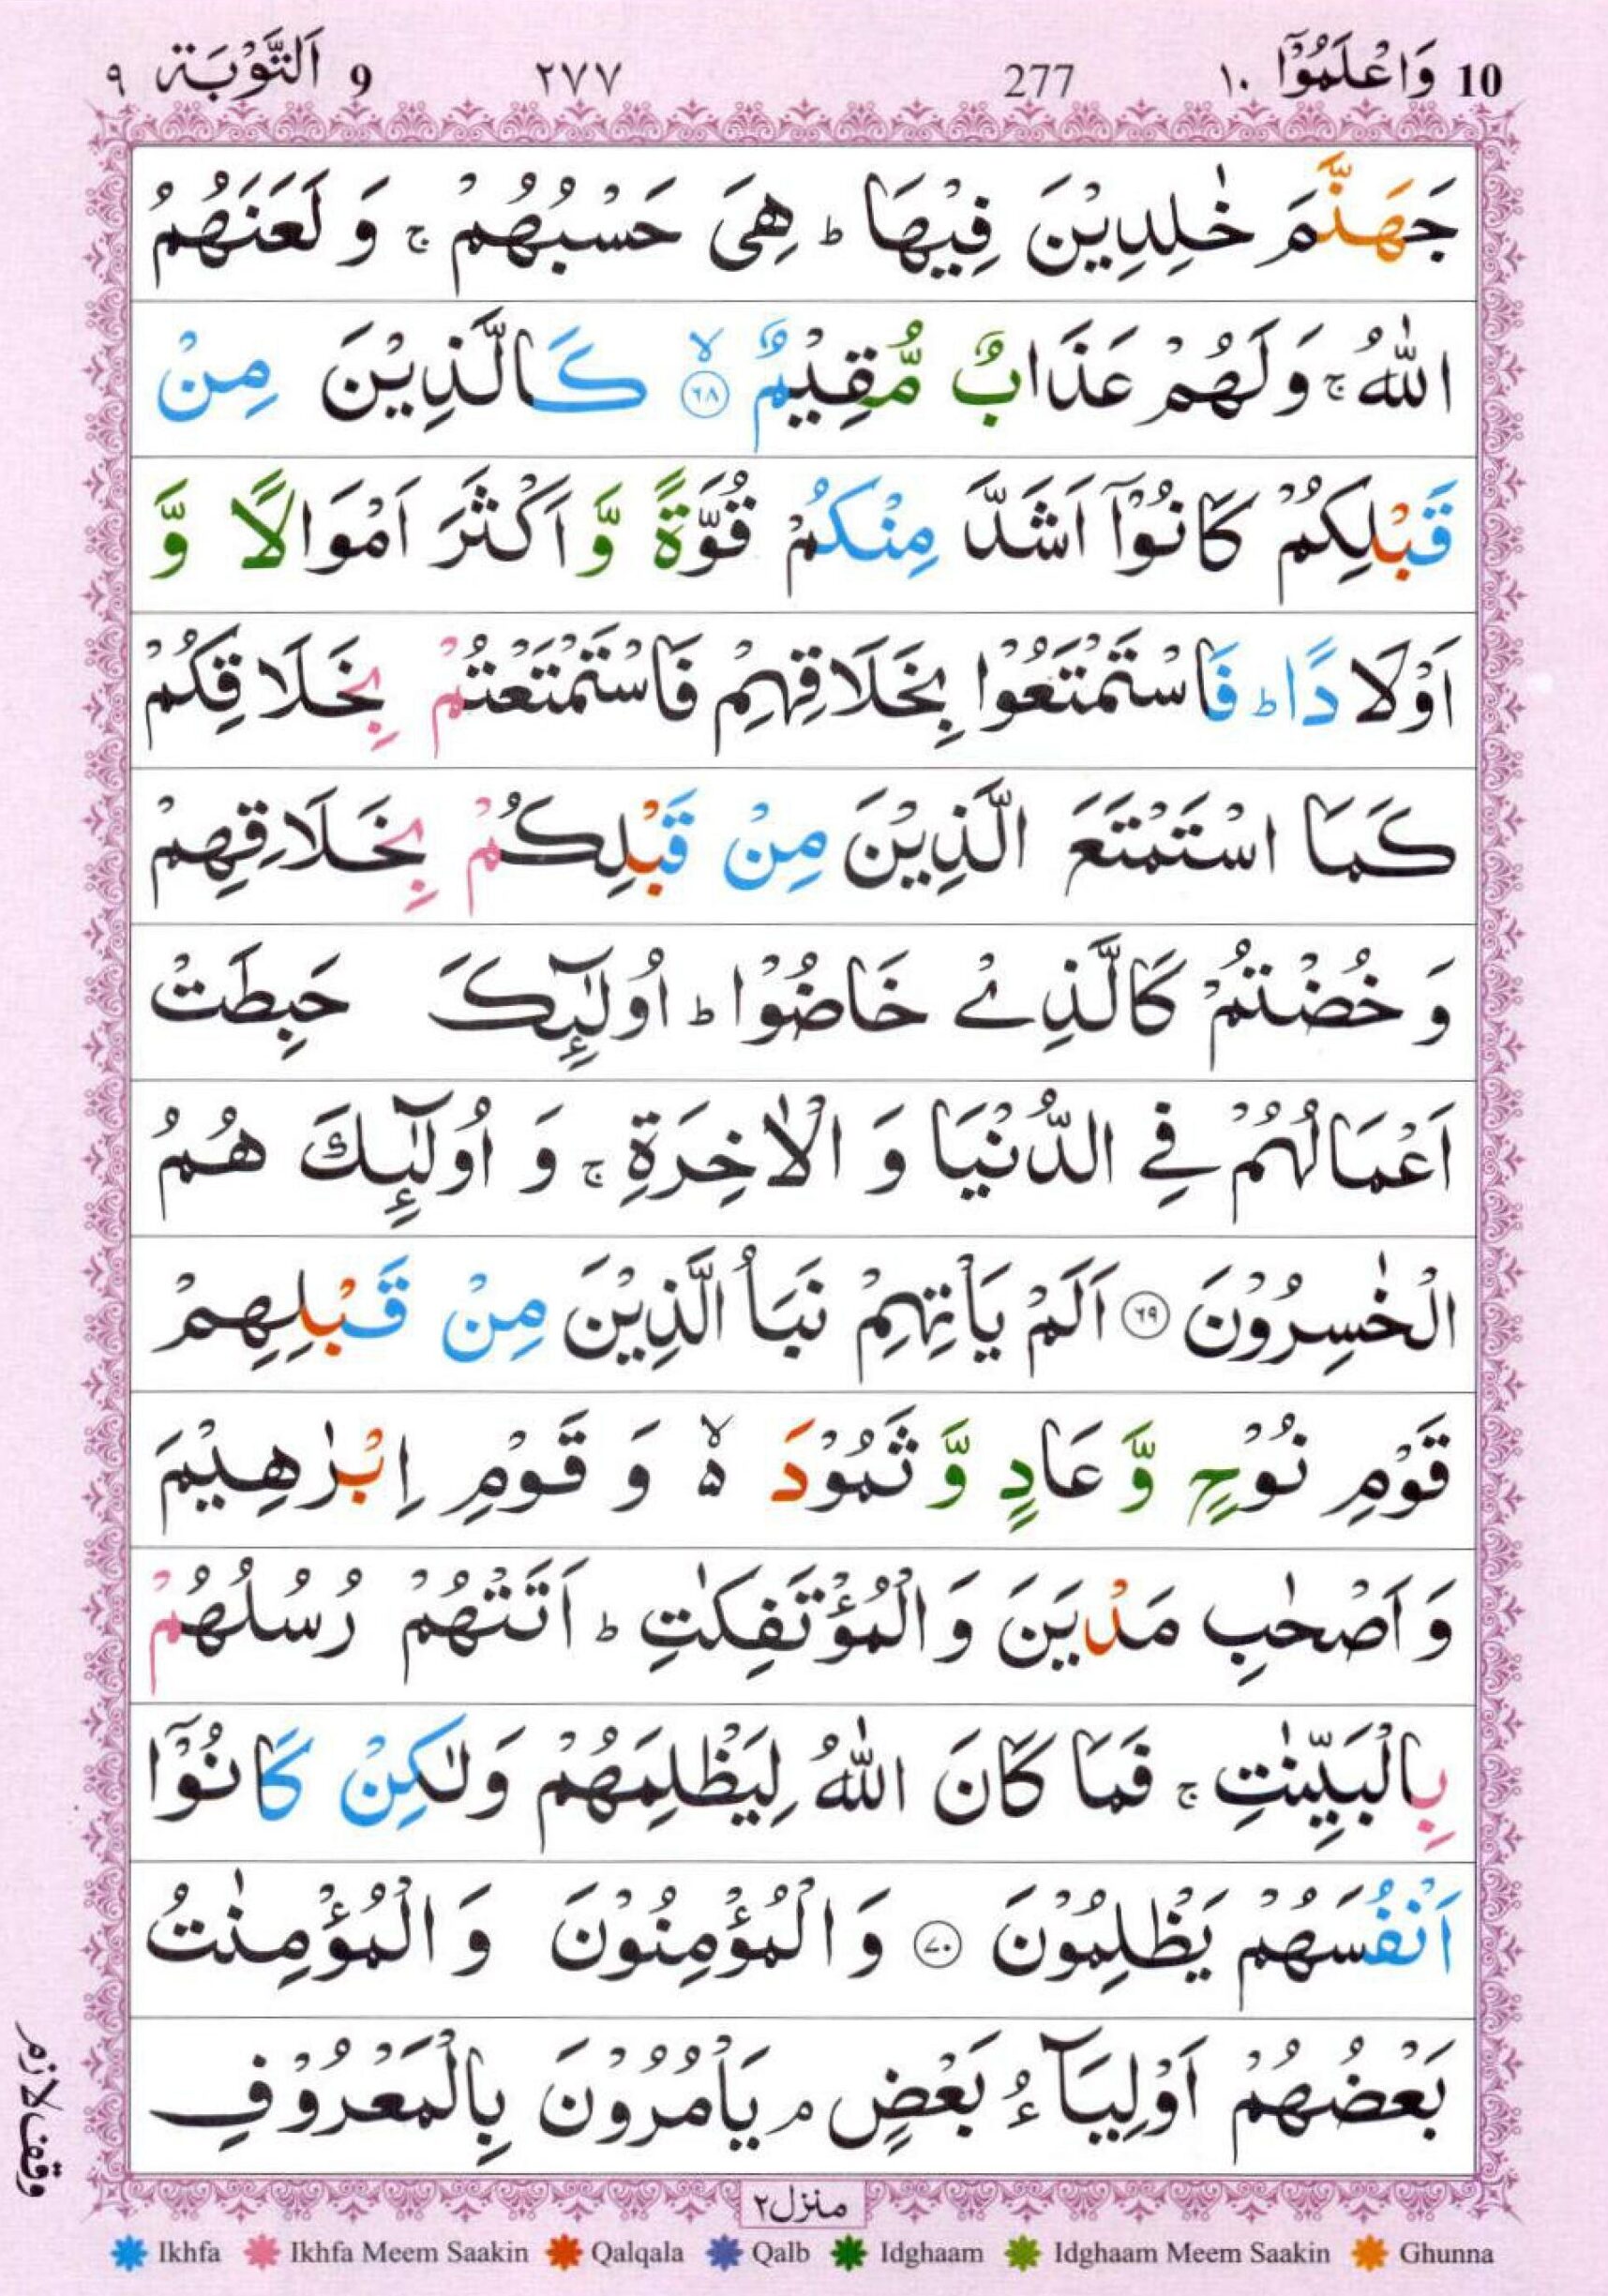 10 وَاعْلَمُوْۤا ١٠ 277 ٢٧٧ 9 اَلتَّوْبَة ٩
جَهَنَّمَ خٰلِدِيْنَ فِيْهَا ؕ هِىَ حَسْبُهُمْ ۚ وَ لَعَنَهُمُ
اللّٰهُ ۚ وَلَهُمْ عَذَابٌ مُّقِيْمٌ ۙ ﴿٦٨﴾ كَالَّذِيْنَ مِنْ
قَبْلِكُمْ كَانُوْۤا اَشَدَّ مِنْكُمْ قُوَّةً وَّ اَكْثَرَ اَمْوَالًا وَّ
اَوْلَادًا ؕ فَاسْتَمْتَعُوْا بِخَلَاقِهِمْ فَاسْتَمْتَعْتُمْ بِخَلَاقِكُمْ
كَمَا اسْتَمْتَعَ الَّذِيْنَ مِنْ قَبْلِكُمْ بِخَلَاقِهِمْ
وَ خُضْتُمْ كَالَّذِىْ خَاضُوْا ؕ اُولٰٓئِكَ حَبِطَتْ
اَعْمَالُهُمْ فِى الدُّنْيَا وَ الْاٰخِرَةِ ۚ وَ اُولٰٓئِكَ هُمُ
الْخٰسِرُوْنَ ﴿٦٩﴾ اَلَمْ يَاْتِهِمْ نَبَاُ الَّذِيْنَ مِنْ قَبْلِهِمْ
قَوْمِ نُوْحٍ وَّ عَادٍ وَّ ثَمُوْدَ ۙ۬ وَ قَوْمِ اِبْرٰهِيْمَ
وَ اَصْحٰبِ مَدْيَنَ وَ الْمُؤْتَفِكٰتِ ؕ اَتَتْهُمْ رُسُلُهُمْ
بِالْبَيِّنٰتِ ۚ فَمَا كَانَ اللّٰهُ لِيَظْلِمَهُمْ وَلٰكِنْ كَانُوْۤا
اَنْفُسَهُمْ يَظْلِمُوْنَ ﴿٧٠﴾ وَ الْمُؤْمِنُوْنَ وَ الْمُؤْمِنٰتُ
بَعْضُهُمْ اَوْلِيَآءُ بَعْضٍ ۘ يَاْمُرُوْنَ بِالْمَعْرُوْفِ
وقف لازم
منزل ٢
Ikhfa Ikhfa Meem Saakin Qalqala Qalb Idghaam Idghaam Meem Saakin Ghunna